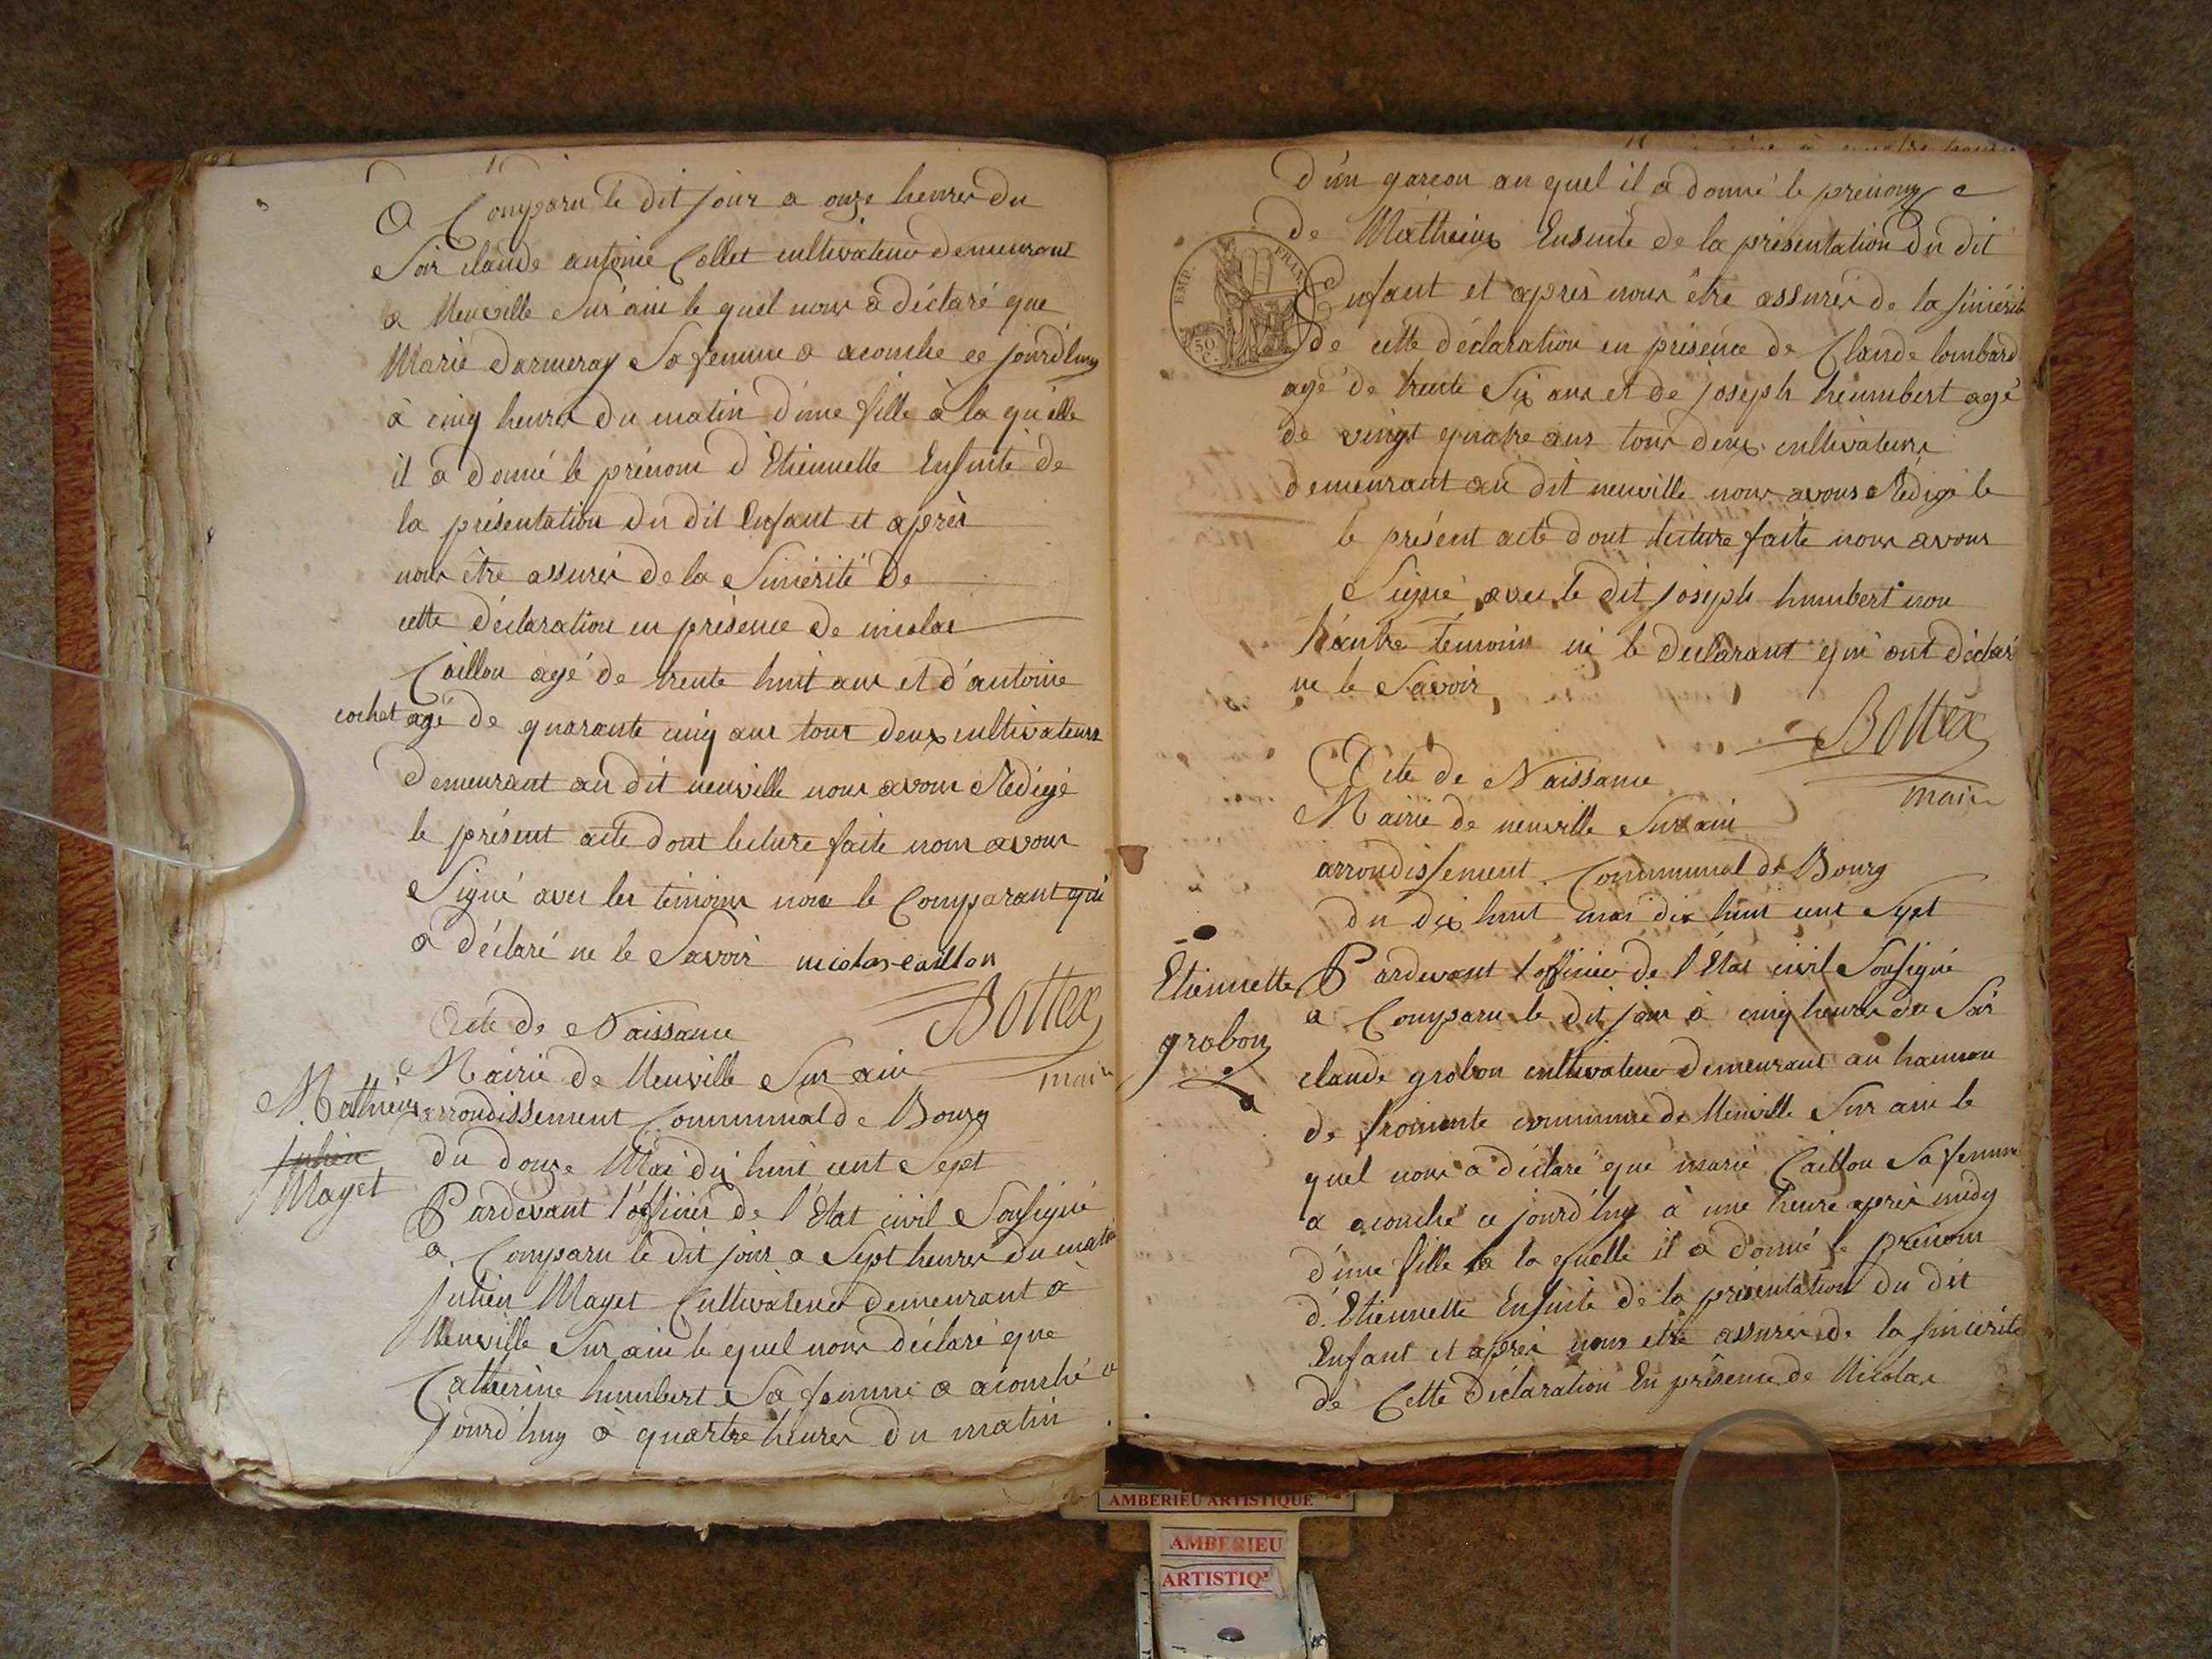 a Comparu le dit jour a onze heures du
Soir claude antoine Collet cultivateur demeurant
a Neuville Sur ain le quel nous a déclaré que
Marie darmeray Sa femme a acouché ce jourd'huy
à cinq heures du matin d'une fille à la quelle
il a donné le prénom d'Etiennette Ensuite de
la présentation du dit Enfant et après
nous être assurés de la Sincérité de
cette déclaration en présence de nicolas
Caillon agé de trente huit ans et d'antoine
cochet agé de quarante cinq ans tous deux cultivateurs
demeurant au dit neuville nous avons Rédigé
le présent acte dont lecture faite nous avons
Signé avec les témoins non le Comparant qui
a déclaré ne le Savoir nicolas caillon
Bottex
maire
Acte de Naissance
Mairie de Neuville Sur ain
Mathieux
Julien
Mayet
arrondissement Communal de Bourg
du douze Mai dix huit cent Sept
Pardevant l'officier de l'Etat civil Sousigné
a Comparu le dit jour a Sept heures du matin
Julien Mayet Cultivateur demeurant à
Neuville Sur ain le quel nous déclaré que
Catherine humbert Sa femme a acouché
jourd'huy à quartre heures du matin
d'un garcon au quel il a donné le prénom
de Mathieux Ensuite de la présentation du dit
EMP. FRAN.
50 C.
Enfant et après nous être assurés de la sincérité
de cette déclaration en présence de Claude lombard
agé de trente Six ans et de joseph heumbert agé
de vingt quatre ans tous deux cultivateurs
demeurant au dit neuville nous avons Rédigé le
le présent acte dont lecture faite nous avons
Signé avec le dit joseph humbert non
l'autre temoins ni le declarant qui ont déclaré
ne le Savoir
Bottex
maire
Acte de Naissance
Mairie de neuville Sur ain
arrondissement Communal de Bourg
du dix huit mai dix huit cent Sept
Etiennette
grobon
Pardevant l'officier de l'Etat civil Sousigné
a Comparu le dit jour à cinq heures du Soir
claude grobon cultivateur demeurant au hameau
de fromente commune de Neuville Sur ain le
quel nous a déclaré que marie Caillon Sa femme
a acouché ce jourd'huy à une heure après midy
d'une fille a la quelle il a donné le prénom
d'Etiennette Ensuite de la présentation du dit
Enfant et après nous etre assurés de la sincérité
de Cette Déclaration En présence de Nicolas
AMBERIEU ARTISTIQUE
AMBERIEU
ARTISTIQ